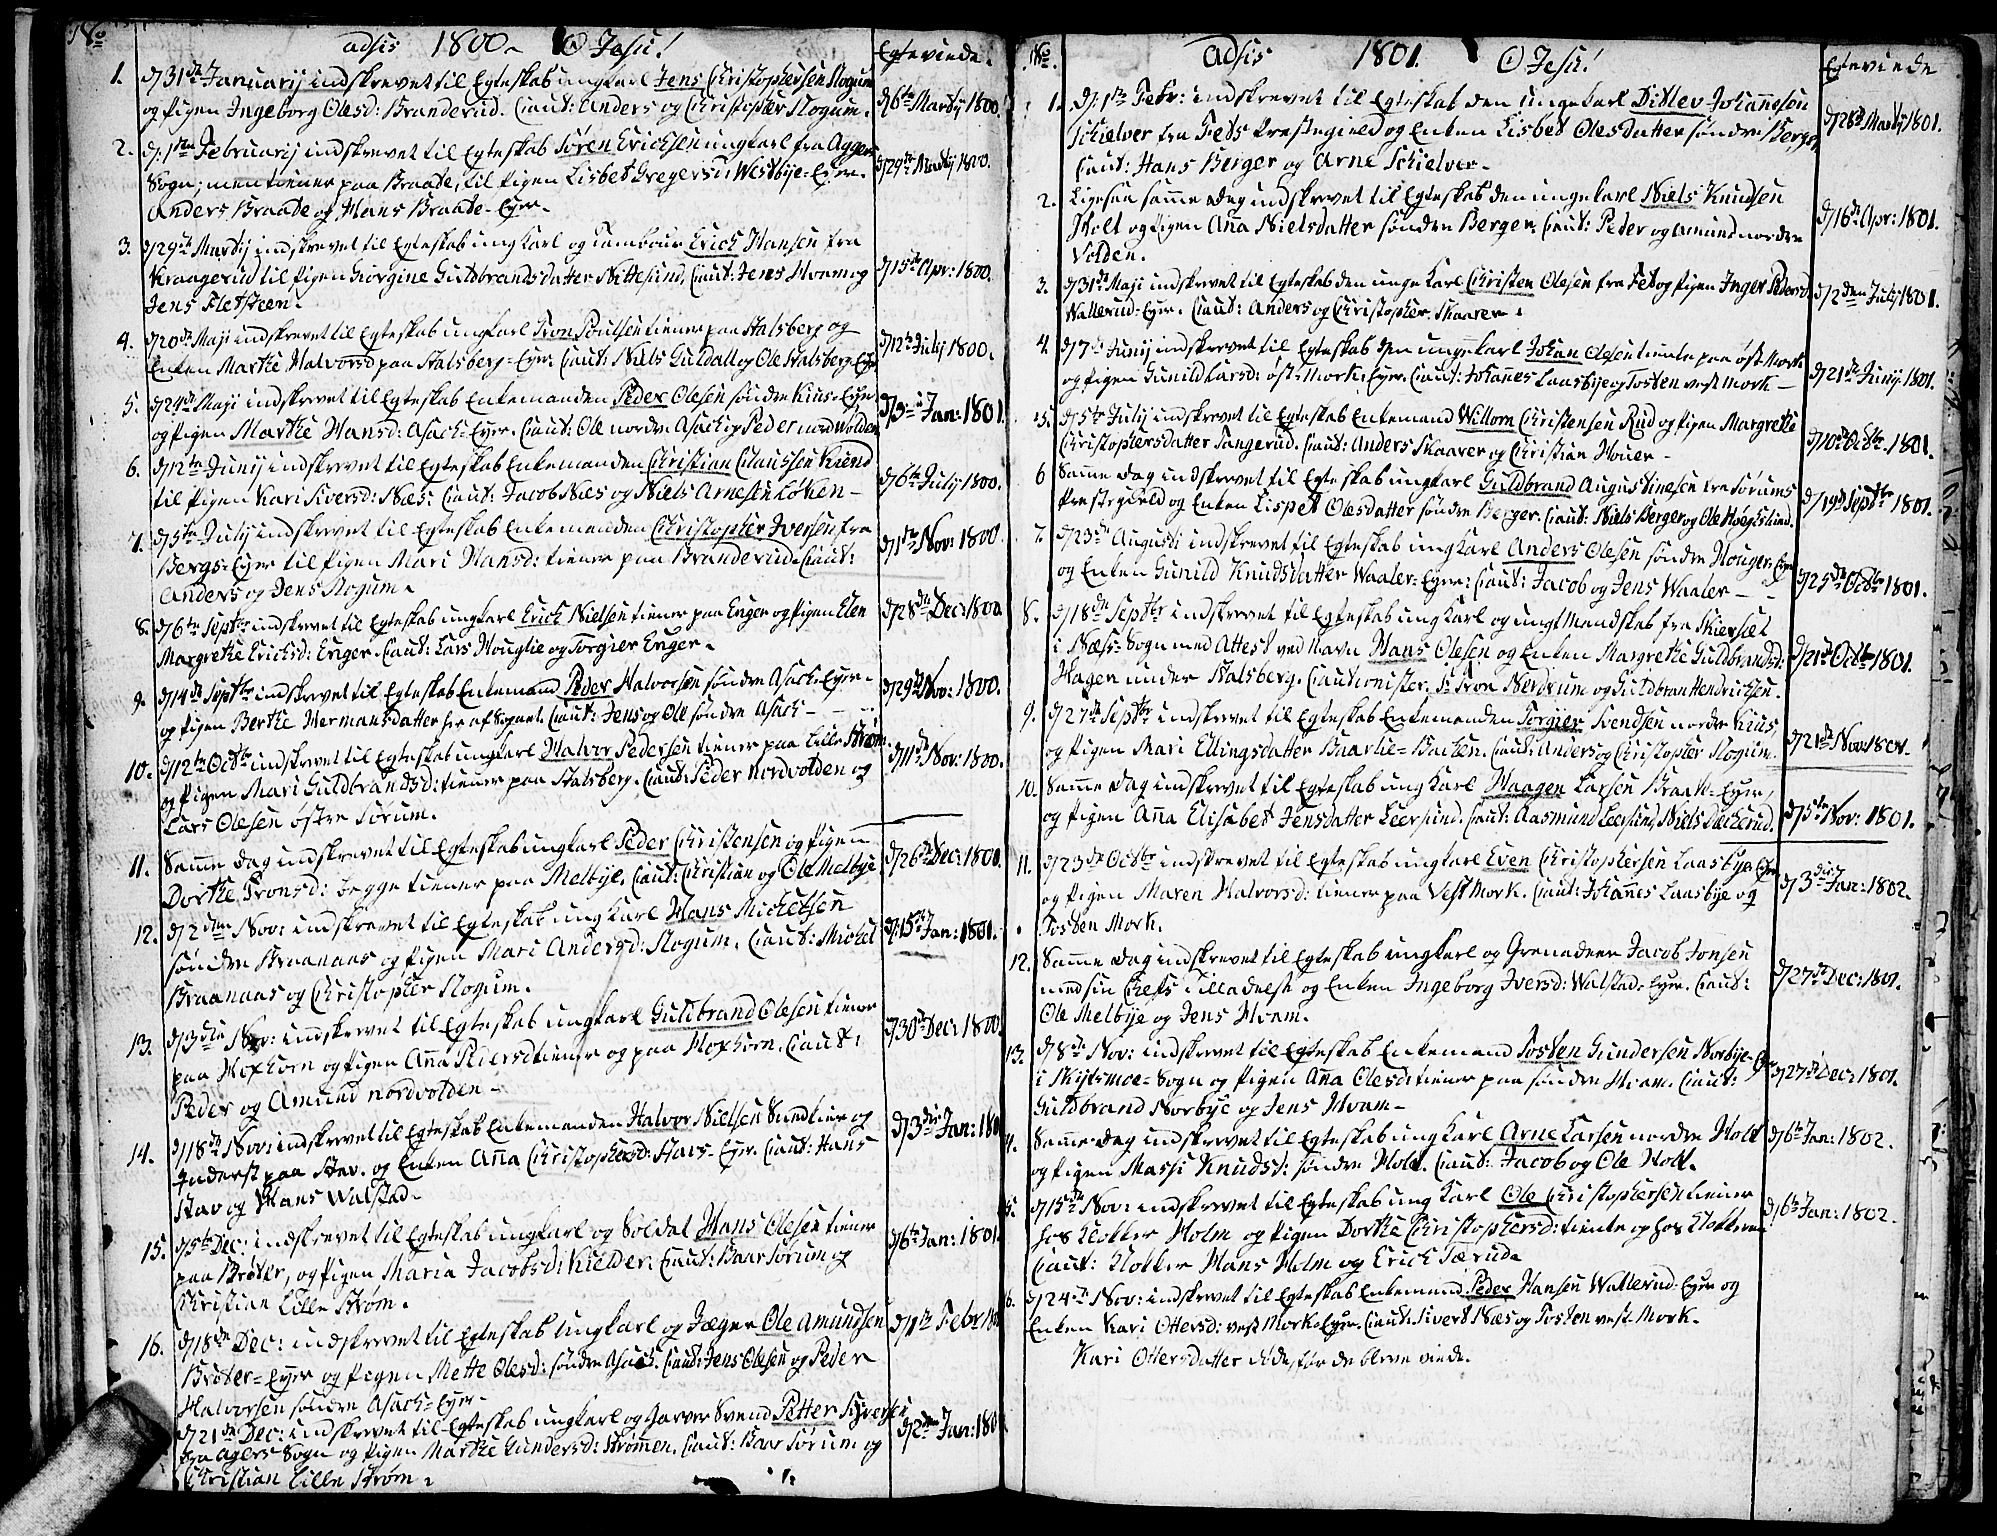 No adsis 1800 O Jesu! Egtevinde.
1. d 31te Januarij indskrevet til Egteskab ungkarl Jens Christophersen Slogum
og Pigen Ingeborg Olesd: Branderud. Caut: Anders og Christopher Slogum. d 6te Martij 1800.
2. d. 1ste Februarij indskrevet til Egteskab Sören Erichsen ungkarl fra Aggers
Sogn; men tiener paa Braate, til Pigen Lisbet Gregersd: Westbye-Eyer. d 29de Martij 1800.
Anders Braate og Hans Braate-Eyer.
3. d 29de Martij indskrevet til Egteskab ungkarl og Tambour Erich Hansen fra
Kraagerud til Pigen Giorgine Guldbrandsdatter Nittesund, Caut: Jens Hvam og d 15de Apr: 1800.
Jens Fletsteen.
4. d 20de Maji indskrevet til Egteskab ungkarl Tron Poulsen tiener paa Stalsberg og
Enken Marthe Halvorsd paa Stalsberg-Eyer. Caut: Niels Guldall og Ole Stalsberg-Eyer d 12te Julij 1800.
5. d 24de Maji indskrevet til Egteskab Enkemanden Peder Olesen söndre Kius-Eyer
og Pigen Marthe Hansd: Asach-Eyer. Caut: Ole nordre Asach og Peder nordWolden d 9de Jan: 1801
6. d 12te Junij indskrevet til Egteskab Enkemanden Christian Claussen Kiend
til Pigen Kari Siversd: Næs: Caut: Jacob Næs og Niels Arnesen Löken d 6te Julij 1800.
7. d 5te Julij indskrevet til Egteskab Enkemanden Christopher Iversen fra
Bergs-Eyer til Pigen Mari Hansd: tiener paa Branderud. Caut: d 1ste Nov: 1800
Anders og Jens Slogum.
8. d 6te Septbr indskrevet til Egteskab ungkarl Erich Nielsen tiener paa Enger og Pigen Elen d 28de Dec: 1800
Margrethe Erichsd: Enger. Caut: Lars Houglie og Torgier Enger.
9. d 14de Septbr indskrevet til Egteskab Enkemand Peder Halvorsen söndre Asach-Eyer d 29de Nov: 1800.
og Pigen Berthe Hermansdatter her af Sognet. Caut: Jens og Ole söndre Asach
10. d 12te Octbr indskrevet til Egteskab ungkarl Halvor Pedersen tiener paa Lille Ström
og Pigen Mari Guldbrandsd: tiener paa Stalsberg. Caut: Peder nordvolden og d 11te Nov: 1800.
Lars Olesen östre Sörum.
11. Samme dag indskrevet til Egteskab ungkarl Peder Christensen og Pigen
Dorthe Tronsd: begge tiener paa Melbye. Caut: Christian og Ole Melbye d 26de Dec: 1800.
12. d 2den Nov: indskrevet til Egteskab ungkarl Hans Michelsen
söndre Braanaas og Pigen Mari Andersd: Slogum. Caut: Michel d. 15de Jan: 1801.
Braanaas og Christopher Slogum.
13. d 3die Nov: indskrevet til Egteskab ungkarl Guldbrand Olesen tiener
paa Mophorn og Pigen Anna Pedersd tiener og paa Mophorn. Caut: d 30te Dec: 1800
Peder og Amund nordvolden
14. d 18de Nov: indskrevet til Egteskab Enkemanden Halvor Nielsen og
Inderst paa Stav. og Enken Anna Christophersd: Stavs-Eyer. Caut: Hans d 3die Jan: 180
Stav og Hans Walstad.
15. d 5te Dec: indskrevet til Egteskab ungkarl og Soldat Hans Olesen tiener
paa Bröter, og Pigen Maria Jacobsd: Kielder. Caut: Baar Sörum og d 6te Jan: 1801.
Christian Lille Ström.
16. d 18de Dec: indskrevet til Egteskab Ungkarl og Jæger Ole Amundsen
Bröter-Eyer og Pigen Mette Olesd: söndre Asach. Caut: Jens Olesen og Peder d 1ste Febr 180
Halvorsen söndre Asach-Eyer
d 21de Dec: indskrevet til Egteskab ungkarl og Garver Svend Petter Syversen
fra Agers Sogn og Pigen Marthe Gundersd: Strömmen. Caut: Baar Sörum og d 2den Jan: 180
Christian Lille Ström.
No. Adsis 1801. O Jesu! Egtevinde
1. d. 1ste Febr: indskrevet til Egteskab den unge karl Ditlev Johannesen
Schielver fra Fets Præstegield og Enken Lisbet Olesdatter söndre Berger, d 28de Martij 1801.
Caut: Hans Berger og Arne Schielver.
2. Ligesaa samme dag indskrevet til Egteskab den unge karl Niels Knudsen
Holt og Pigen Anna Nielsdatter söndre Berger. Caut: Peder og Amund nordre d 16de Apr: 1801.
Volden.
3. d 31te Maji indskrevet til Egteskab den unge karl Christen Olesen fra Fet og Pigen Inger Pedersd
Wallerud-Eyer. Caut: Anders og Christopher Skaarer. d 2den Julij 1801.
4 d 7de Junij indskrevet til Egteskab den unge karl Johan Olesen tiente paa öst Mork
og Pigen Gunild Larsd: öst-Mork-Eyer. Caut: Johannes Laasbye og Tosten vest mork d 21de Junij 1801.
5. d 5te Julij indskrevet til Egteskab Enkemand Willom Christensen Rud og Pigen Margrethe
Christophersdatter Tangerud. Caut: Anders Skaarer og Christian Houer d 10de Octbr. 1801.
6 Samme dag indskrevet til Egteskab ungkarl Guldbrand Augustinesen fra Sörums
Præstegield og Enken Lispet Olesdatter söndre Berger. Caut: Niels Berger og Ole d 19de Septbr 1801.
7. d 23de Augusti indskrevet til Egteskab ungkarl Anders Olesen söndre Houger-Eyer
og Enken Gunild Knudsdatter Waaler-Eyer: Caut: Jacob og Jens Waaler d 25de Octbr 1801.
8. d 18de Septbr indskrevet til Egteskab ungkarl og ungt Mandskab fra Skiersæt
i Næss-Sogn med Attest ved Navn Hans Olesen og Enken Margrethe Guldbrandsd: d 21de Octb 1801.
Hagen under Stalsberg. Cautionister Sr Tron Nerdrum og Guldbran Hendrichsen.
9. d 27de Septbr indskrevet til Egteskab Enkemanden Torgier Svendsen nordre Kius,
og Pigen Mari Ellingsdatter Buarlie-Bachen. Caut: Anders og Christopher Slogum. d 21de Nov 1801.
10. Samme dag indskrevet til Egteskab ungkarl Haagen Larsen Braate-Eyer,
og Pigen Anna Elisabet Jensdatter Leersund. Caut: Aasmund Leersund, Niels d 5te Nov: 1801.
11. d 23de Octbr indskrevet til Egteskab ungkarl Even Christophersen Laasbye Eyer
og Pigen Maren Halvorsd: tiener paa Vest Mork. Caut: Johannes Laasbye og d 3die Jan: 1802.
Tosten Mork.
12. Samme dag indskrevet til Egteskab ungkarl og Grenadeer Jacob Jonsen
med sin Chefs Tilladelse og Enken Ingeborg Iversd: Walstad-Eyer. Caut: d 27de Dec: 1801.
Ole Melbye og Jens Hvam.
13. d 8de Nov: indskrevet til Egteskab Enkemand Tosten Gundersen Norbye-Eyer
i Skydsmoe-Sogn og Pigen Anna Olesd: tiener paa söndre Hvam. Caut: d 27de Dec: 1801.
Guldbrand Norbye og Jens Hvam
4. Samme dag indskrevet til Egteskab ungkarl Arne Larsen nordre Holt d 6te Jan: 1802.
og Pigen Massi Knudsd: söndre Holt. Caut: Jacob og Ole Holt.
5. d 15de Nov: indskrevet til Egteskab ungkarl Ole Christophersen tiener
hos Klokker Holm og Pigen Dorthe Christophersd: tiente og hos Klokkeren d 6te Jan: 1802.
Caut: Klokker Hans Holm og Erich Tærud.
6. d 24de Nov: indskrevet til Egteskab Enkemand Peder Hansen Wallerud-Eyer og
Enken Kari Ottersd: vest Mork-Eyer. Caut: Sivert Næs og Tosten vest-Mork.
Kari Ottersdatter döde, för de bleve viede.